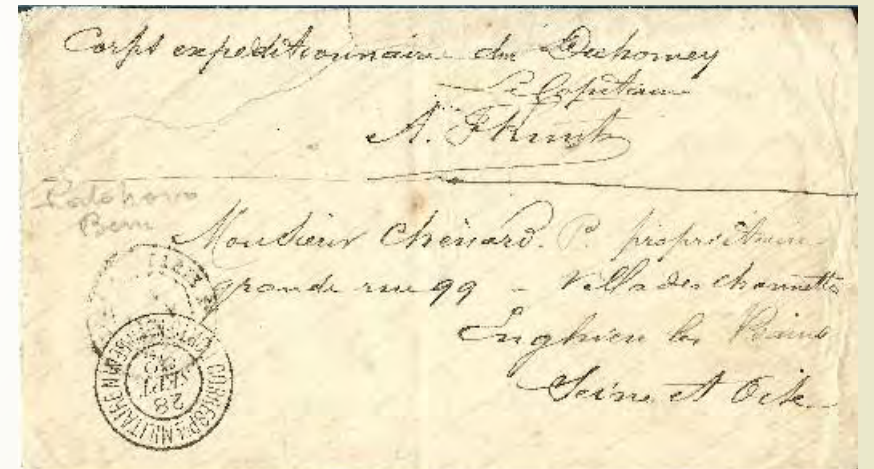 Corps expéditionnaire du Dahomey
Le Capitaine
A.
Bem
Monsieur Chénard. P. propriétaire
grande rue 99 - Villa des charmettes
Enghien les Bains
Seine et Oise
CORRESP. MILITAIRE
28 SEPT